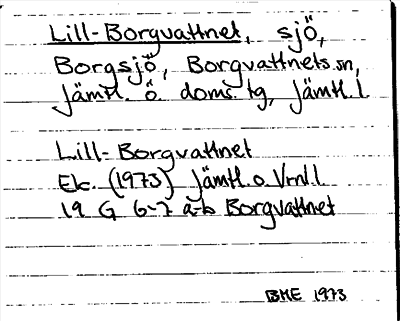 Lill-Borgvattnet, sjö,
Borgsjö, Borgvattnets sn,
Jämtl. ö. doms. tg, Jämtl. l
Lill-Borgvattnet
Ek. (1973) Jämtl. o. Vrnl. l
19 G 6-7 a-b Borgvattnet
BME 1973